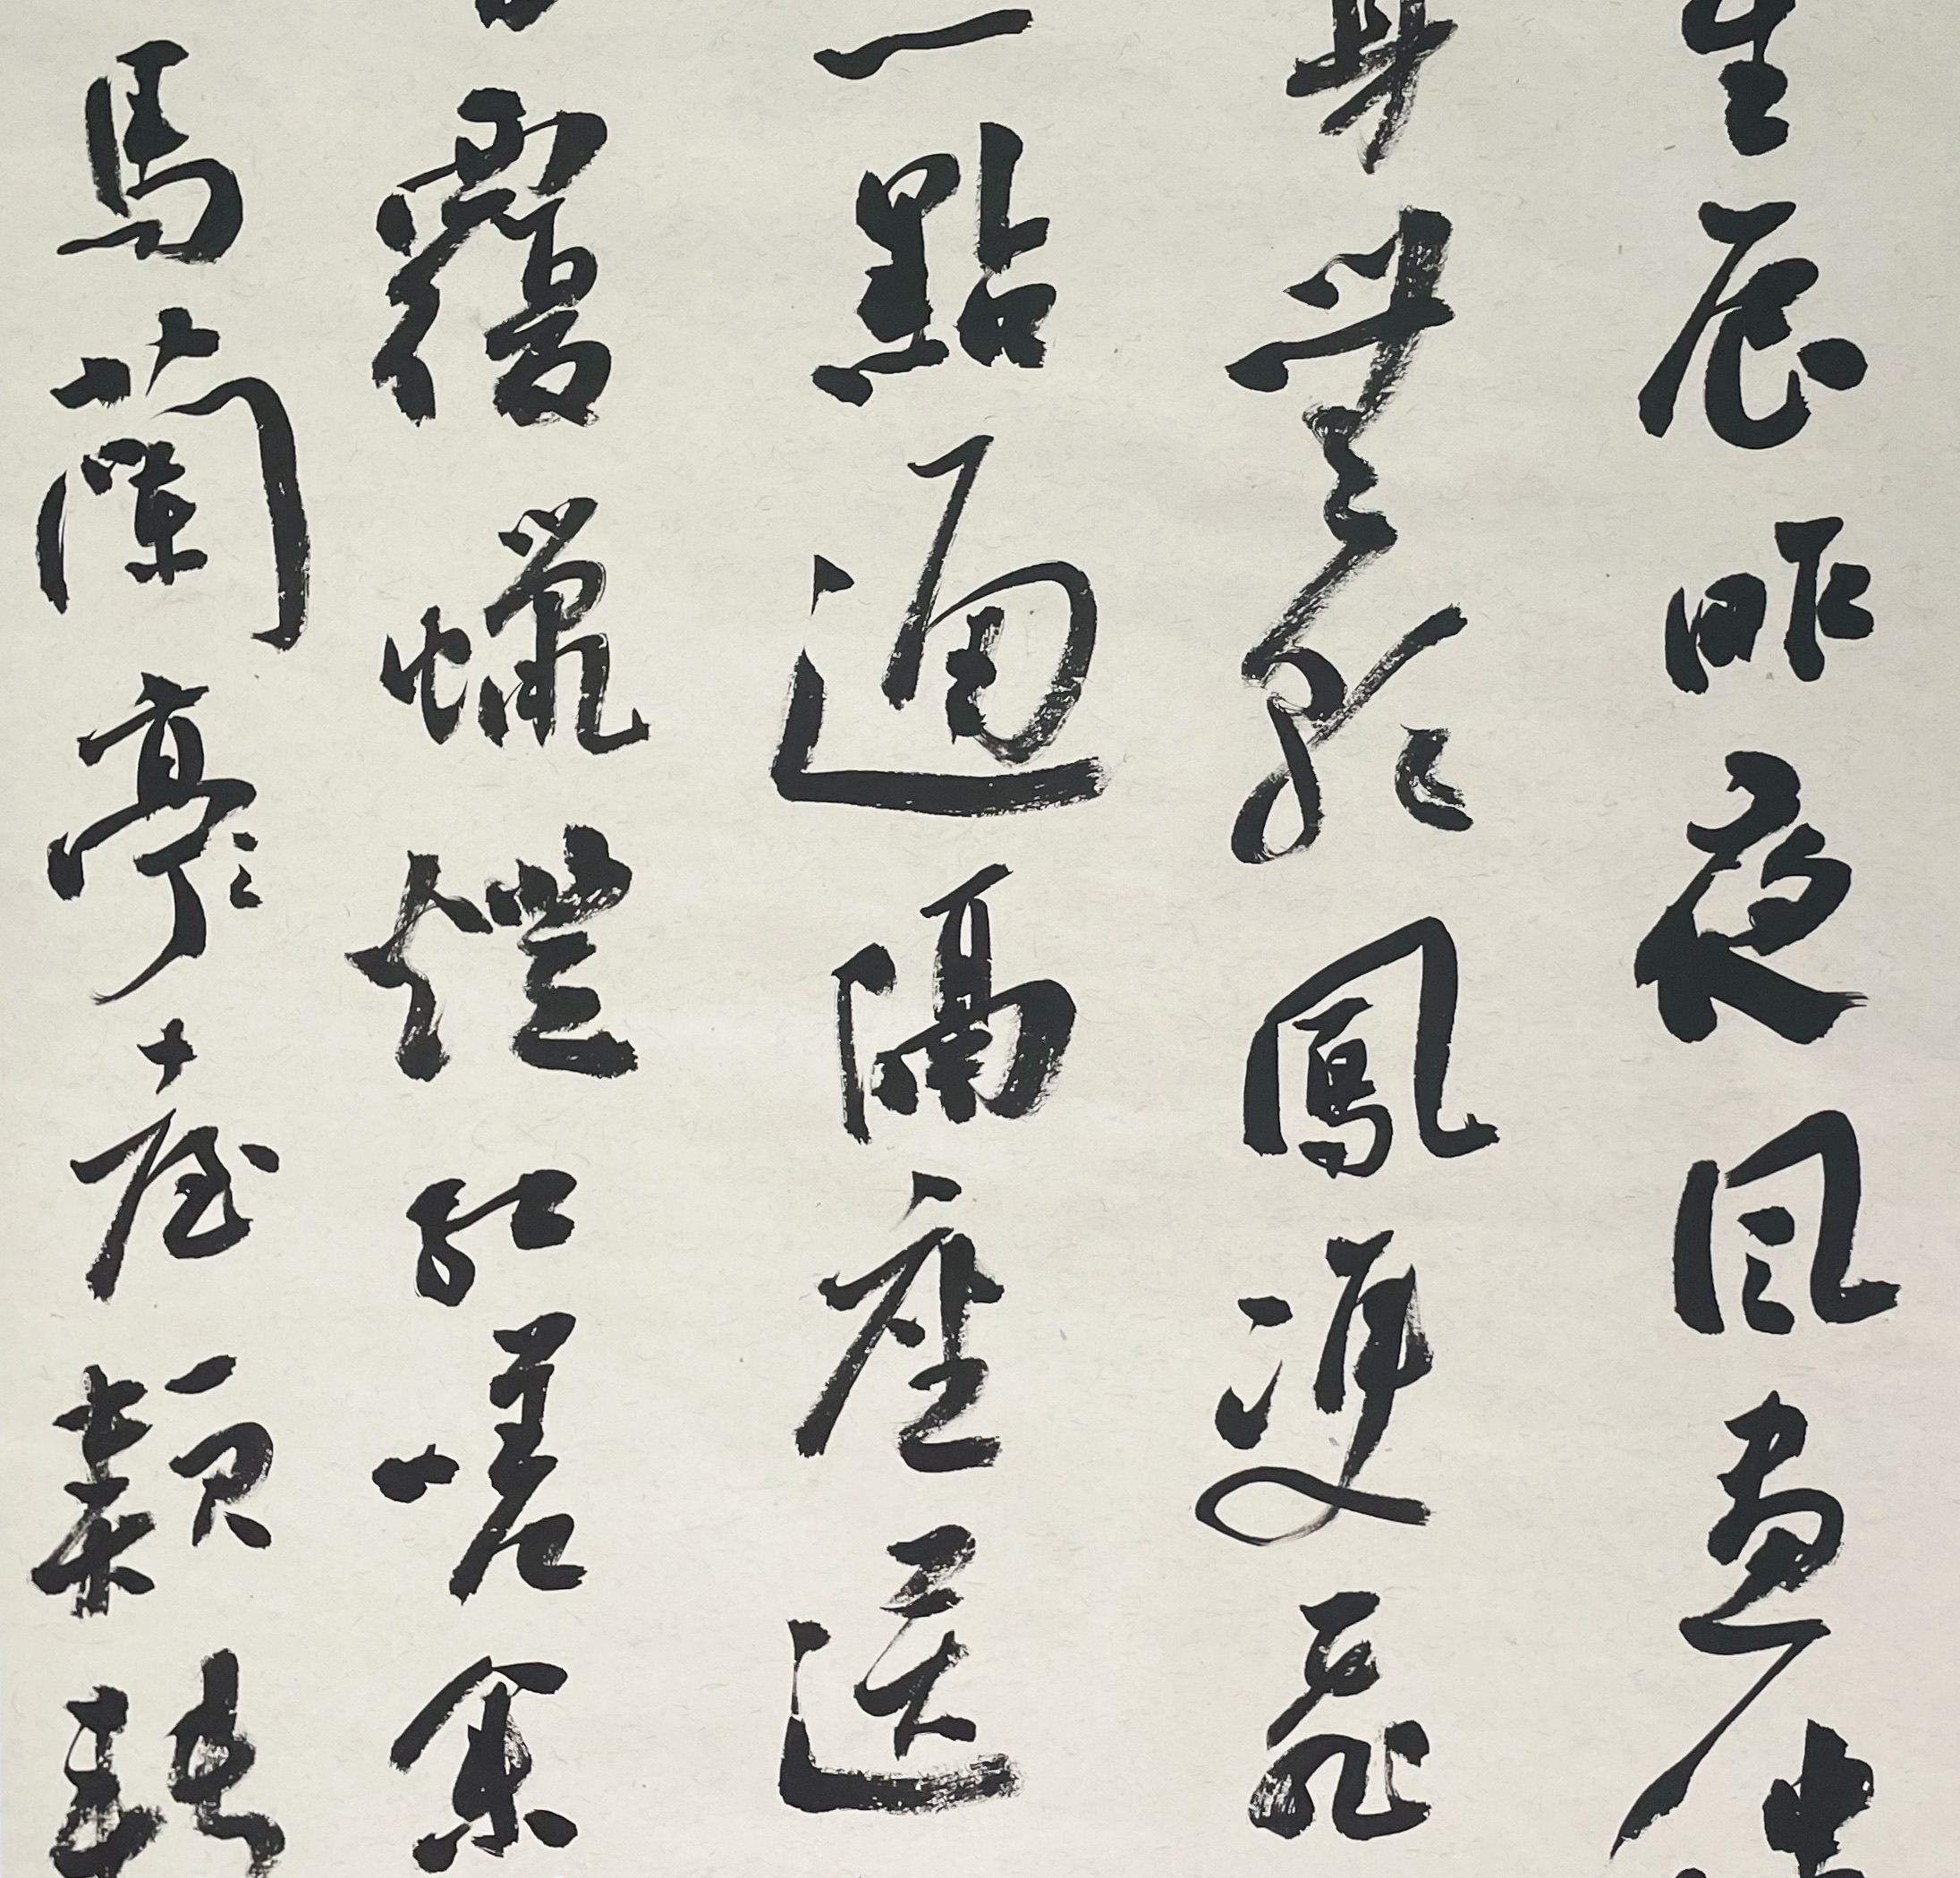 星辰昨夜風畫
身無彩鳳雙飛
一點通隔座送
覆蠟燈紅嗟余
馬蘭亭臺類轉